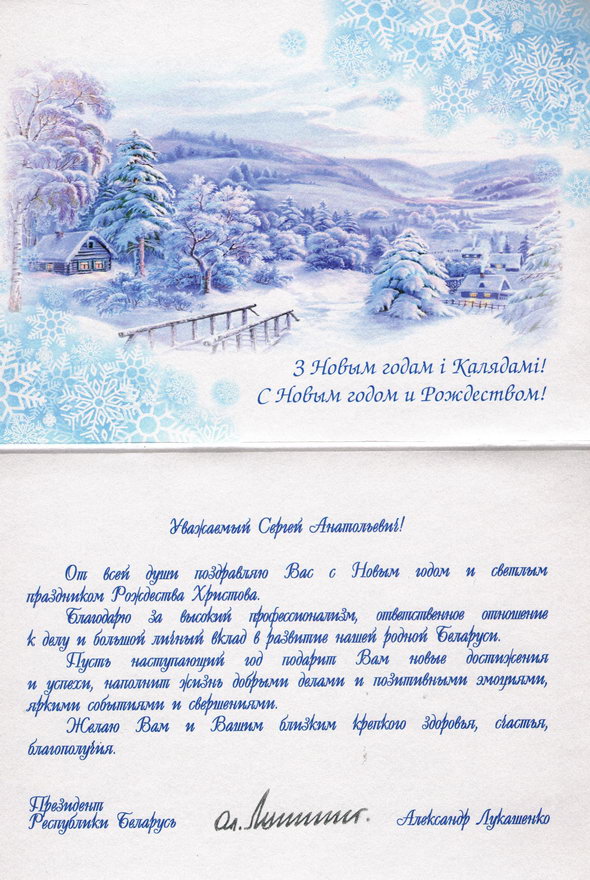 З Новым годам і Калядамі!
С Новым годом и Рождеством!
Уважаемый Сергей Анатольевич!
От всей души поздравляю Вас с Новым годом и светлым
праздником Рождества Христова.
Благодарю за высокий профессионализм, ответственное отношение
к делу и большой личный вклад в развитие нашей родной Беларуси.
Пусть наступающий год подарит Вам новые достижения
и успехи, наполнит жизнь добрыми делами и позитивными эмоциями,
яркими событиями и свершениями.
Желаю Вам и Вашим близким крепкого здоровья, счастья,
благополучия.
Президент
Республики Беларусь
Александр Лукашенко